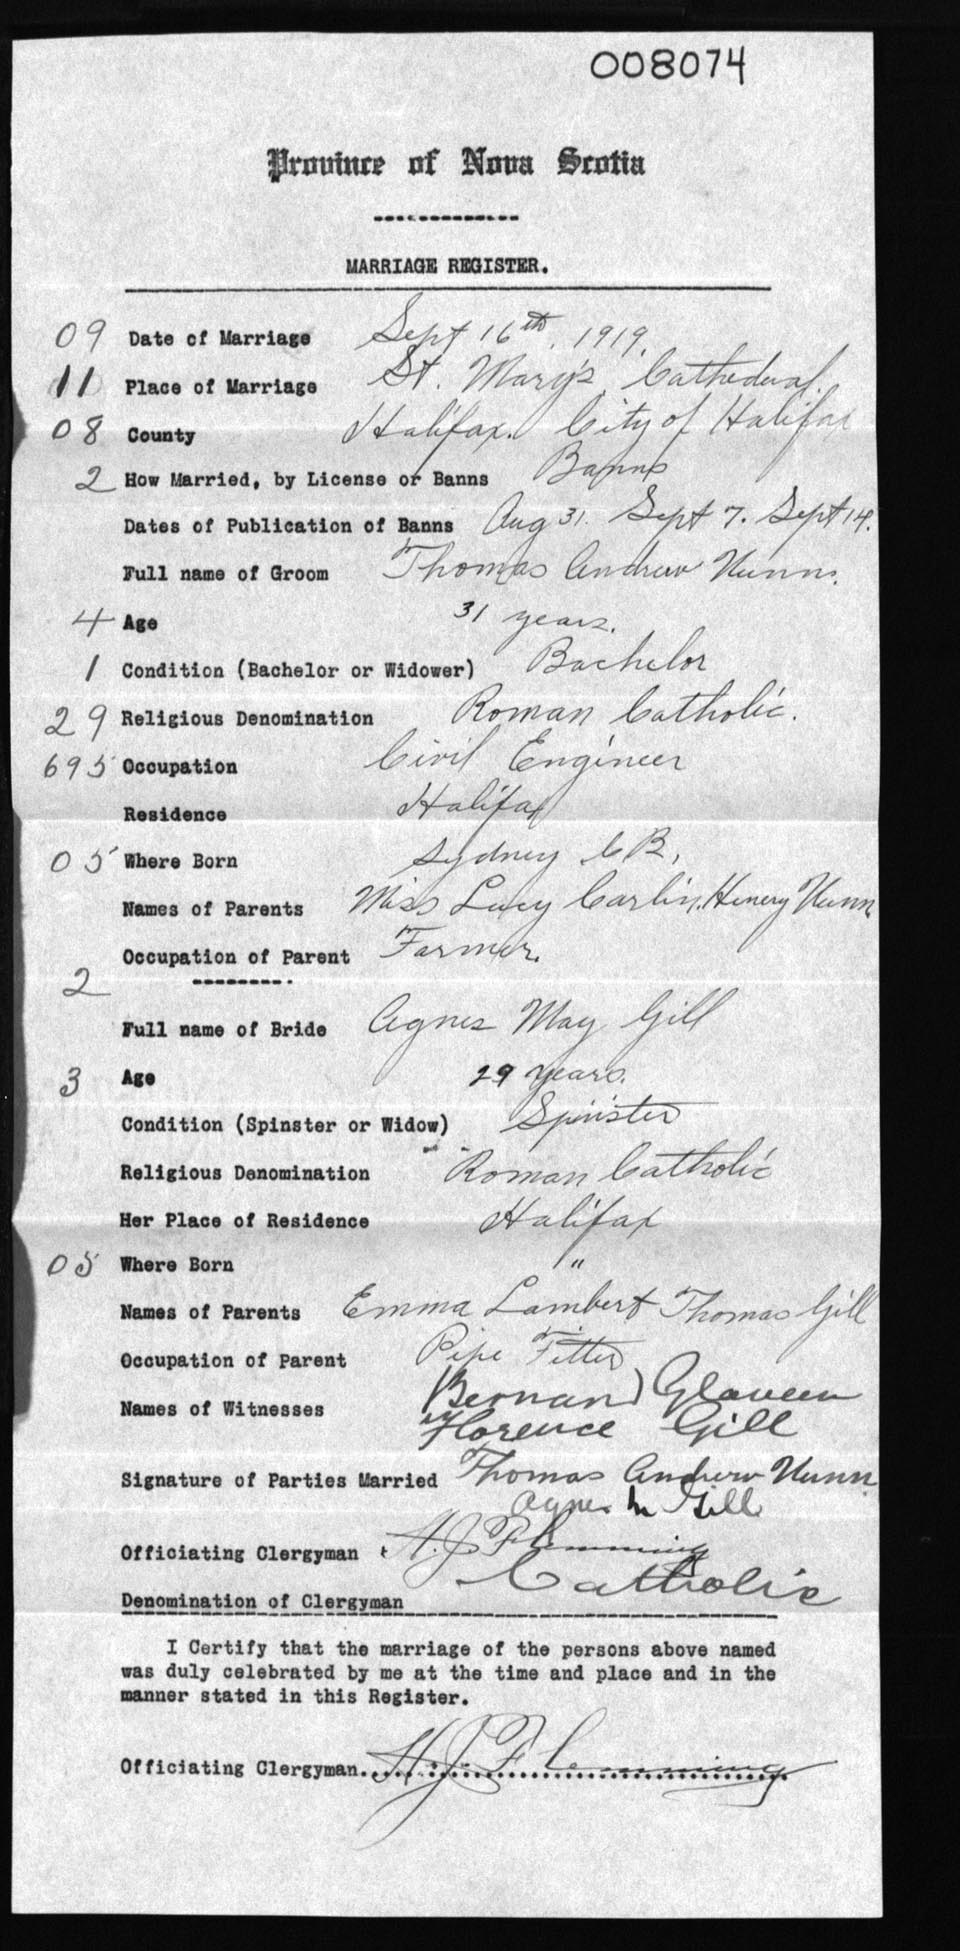 008074
Province of Nova Scotia
MARRIAGE REGISTER.
09 Date of Marriage Sept 16th, 1919.
11 Place of Marriage St. Mary's Cathederal.
08 County Halifax. City of Halifax
2 How Married, by License or Banns Banns
Dates of Publication of Banns Aug 31. Sept 7. Sept 14.
Full name of Groom Thomas Andrew Nunn.
4 Age 31 years.
1 Condition (Bachelor or Widower) Bachelor
29 Religious Denomination Roman Catholic.
695 Occupation Civil Engineer
Residence Halifax
05 Where Born Sydney C B,
Names of Parents Miss Lucy Carlin. Henery Nunn
Occupation of Parent Farmer.
2
Full name of Bride Agnes May Gill
3 Age 29 years.
Condition (Spinster or Widow) Spinister
Religious Denomination Roman Catholic
Her Place of Residence Halifax
05 Where Born "
Names of Parents Emma Lambert Thomas Gill
Occupation of Parent Pipe Fitter
Names of Witnesses
Florence Gill
Signature of Parties Married Thomas Andrew Nunn
Agnes M Gill
Officiating Clergyman H.J. Flemming
Catholic
Denomination of Clergyman
I Certify that the marriage of the persons above named
was duly celebrated by me at the time and place and in the
manner stated in this Register.
Officiating Clergyman H.J. Flemming